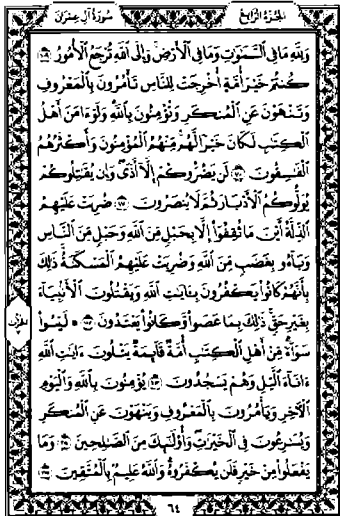 الجزء الرابع
سورة آل عمران
وَلِلَّهِ مَا فِي السَّمَٰوَٰتِ وَمَا فِي الْأَرْضِ وَإِلَى اللَّهِ تُرْجَعُ الْأُمُورُ ١٠٩
كُنتُمْ خَيْرَ أُمَّةٍ أُخْرِجَتْ لِلنَّاسِ تَأْمُرُونَ بِالْمَعْرُوفِ
وَتَنْهَوْنَ عَنِ الْمُنكَرِ وَتُؤْمِنُونَ بِاللَّهِ وَلَوْ ءَامَنَ أَهْلُ
الْكِتَٰبِ لَكَانَ خَيْرًا لَّهُم مِّنْهُمُ الْمُؤْمِنُونَ وَأَكْثَرُهُمُ
الْفَٰسِقُونَ ١١٠ لَن يَضُرُّوكُمْ إِلَّا أَذًى وَإِن يُقَٰتِلُوكُمْ
يُوَلُّوكُمُ الْأَدْبَارَ ثُمَّ لَا يُنصَرُونَ ١١١ ضُرِبَتْ عَلَيْهِمُ
الذِّلَّةُ أَيْنَ مَا ثُقِفُوا إِلَّا بِحَبْلٍ مِّنَ اللَّهِ وَحَبْلٍ مِّنَ النَّاسِ
وَبَاءُو بِغَضَبٍ مِّنَ اللَّهِ وَضُرِبَتْ عَلَيْهِمُ الْمَسْكَنَةُ ذَٰلِكَ
بِأَنَّهُمْ كَانُوا يَكْفُرُونَ بِـَٔايَٰتِ اللَّهِ وَيَقْتُلُونَ الْأَنۢبِيَاءَ
بِغَيْرِ حَقٍّ ذَٰلِكَ بِمَا عَصَوا وَّكَانُوا يَعْتَدُونَ ١١٢ لَيْسُوا
سَوَاءً مِّنْ أَهْلِ الْكِتَٰبِ أُمَّةٌ قَائِمَةٌ يَتْلُونَ ءَايَٰتِ اللَّهِ
ءَانَاءَ الَّيْلِ وَهُمْ يَسْجُدُونَ ١١٣ يُؤْمِنُونَ بِاللَّهِ وَالْيَوْمِ
الْءَاخِرِ وَيَأْمُرُونَ بِالْمَعْرُوفِ وَيَنْهَوْنَ عَنِ الْمُنكَرِ
وَيُسَٰرِعُونَ فِي الْخَيْرَٰتِ وَأُولَٰئِكَ مِنَ الصَّٰلِحِينَ ١١٤ وَمَا
يَفْعَلُوا مِنْ خَيْرٍ فَلَن يُكْفَرُوهُ وَاللَّهُ عَلِيمٌ بِالْمُتَّقِينَ ١١٥
٦٤